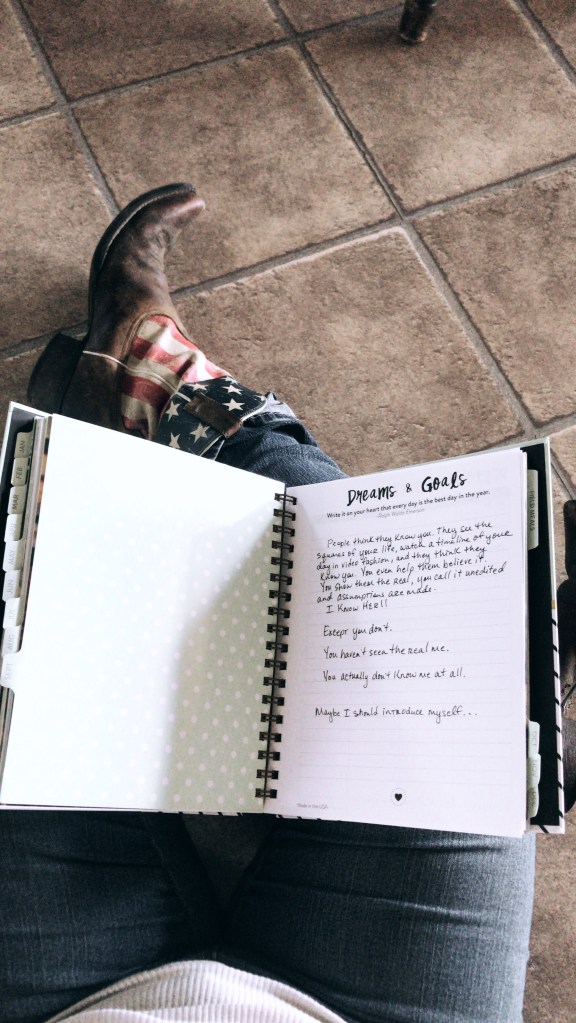 JAN
FEB
MAR
Dreams & Goals
Write it on your heart that every day is the best day in the year.
Ralph Waldo Emerson
People think they know you. They see the
squares of your life, watch a timeline of your
day in video fashion, and they think they
know you. You even help them believe it.
You show them the real, you call it unedited
and assumptions are made.
I know HER!!
Except you don't.
You haven't seen the real me.
You actually don't know me at all.
Maybe I should introduce myself...
Made in the USA